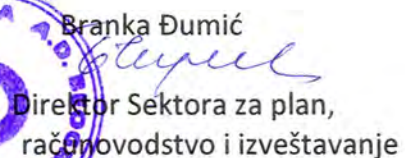 Branka Đumić
Direktor Sektora za plan,
računovodstvo i izveštavanje